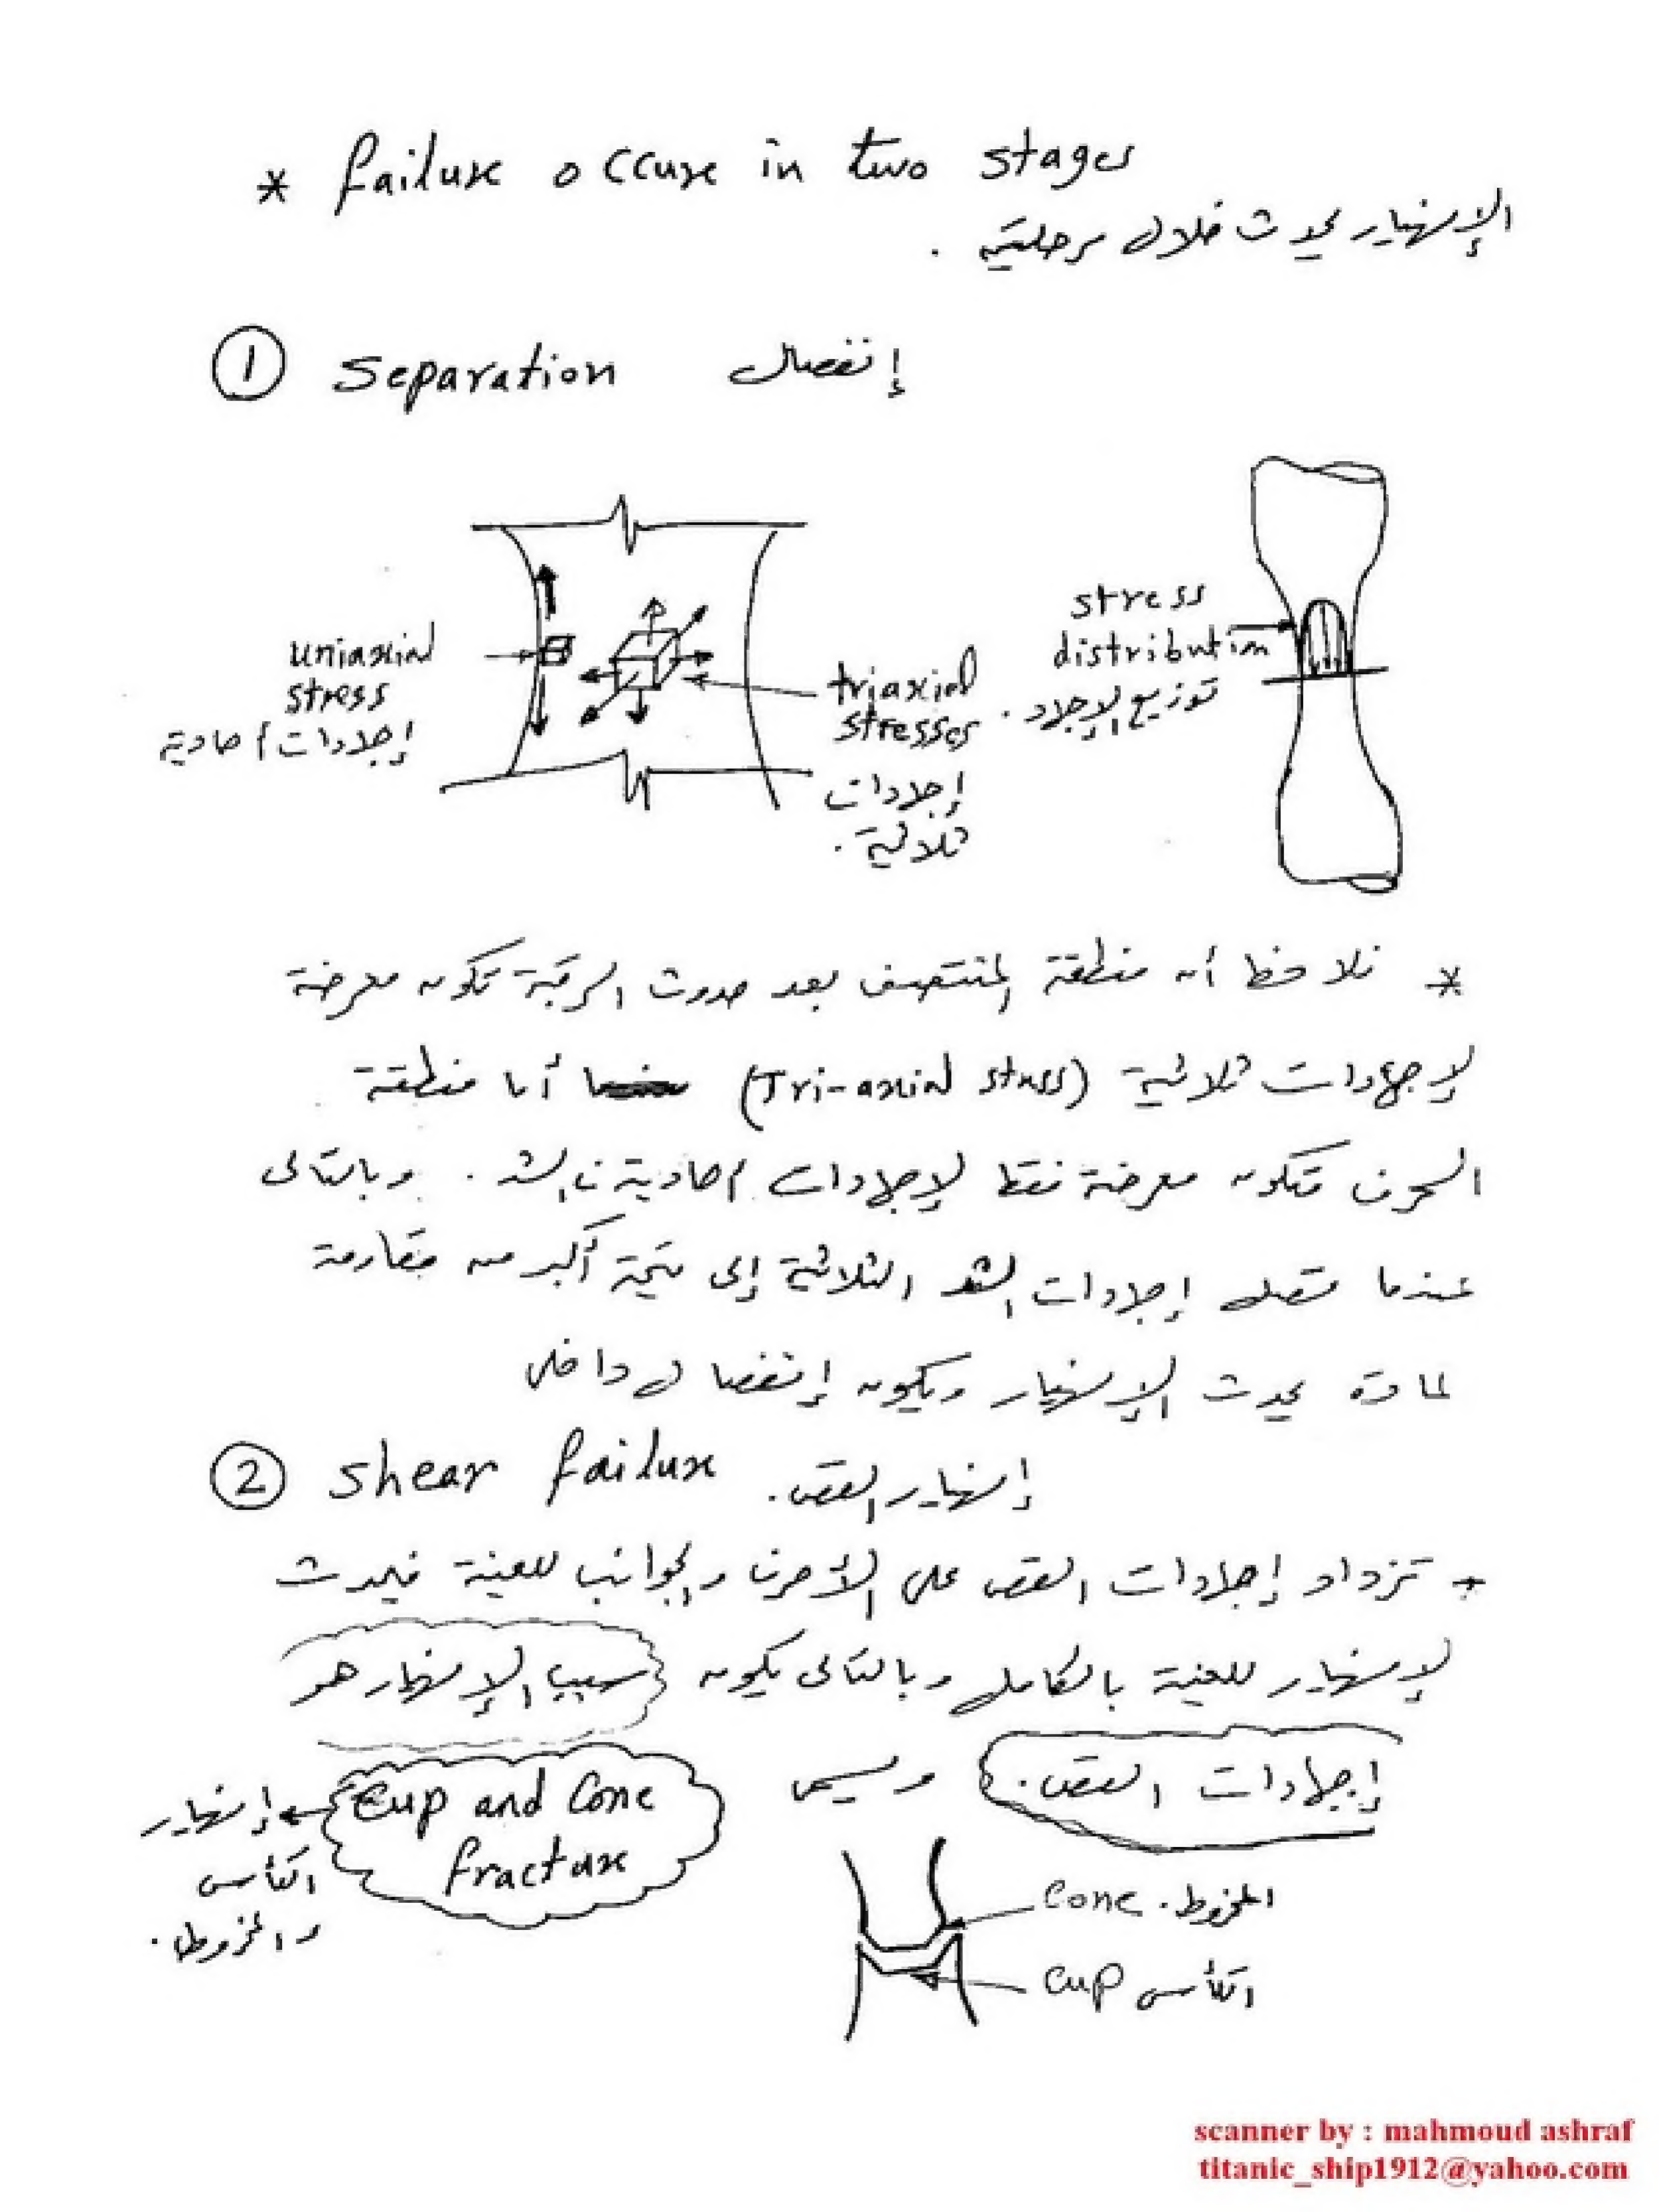 * failure occure in two stages
الإنهيار يحدث خلال مرحلتين .
① Separation إنفصال
stress
distribution
توزيع الإجهاد .
uniaxial
stress
إجهادات أحادية
triaxial
stresses
إجهادات
ثلاثية .
* نلاحظ أن منطقة المنتصف بعد حدوث الرقبة تكون معرضة
لإجهادات ثلاثية (Tri-axial stress) أما منطقة
الحرف فتكون معرضة فقط لإجهادات أحادية فى الشد . وبالتالى
عندما تصل إجهادات الشد الثلاثية إلى قيمة أكبر من مقاومة
المادة يحدث الإنهيار ويكون إنفصال داخلى
② Shear failure إنهيار القص .
* تزداد إجهادات القص على الأحرف والجوانب للعينة فيحدث
الإنهيار للعينة بالكامل وبالتالى يكون سبب الإنهيار هو
إجهادات القص . ويسمى
Cup and Cone
fracture
إنهيار
الكأس
والمخروط .
Cone المخروط .
cup الكأس
scanner by : mahmoud ashraf
titanic_ship1912@yahoo.com